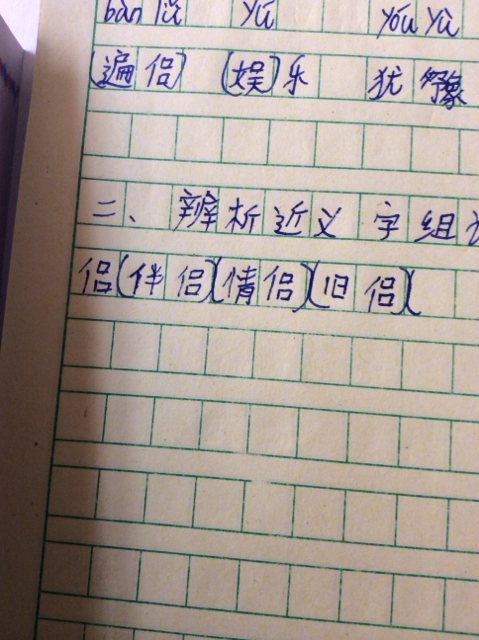 bàn lǚ yú yóu yù
(遍侣) (娱)乐 犹豫
二、辨析近义字组
侣(伴侣)(情侣)(旧侣)(